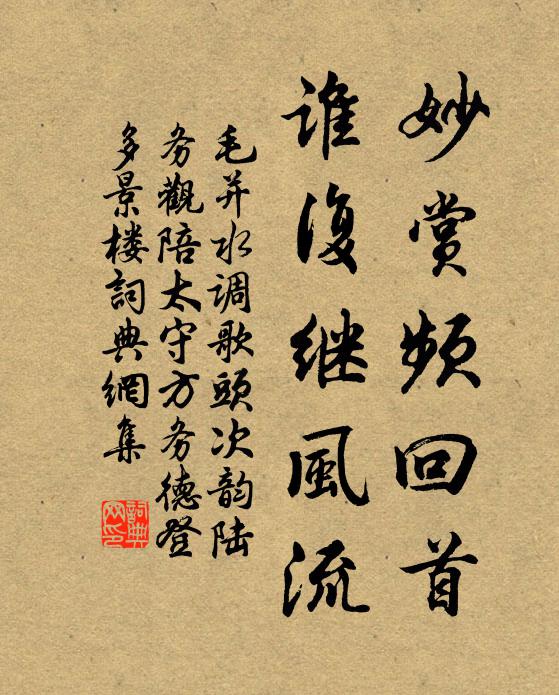 妙赏频回首
谁復继風流
毛并水调歌頭次韵陆
务觀陪太守方务德登
多景楼詞典網集
詞典
网印